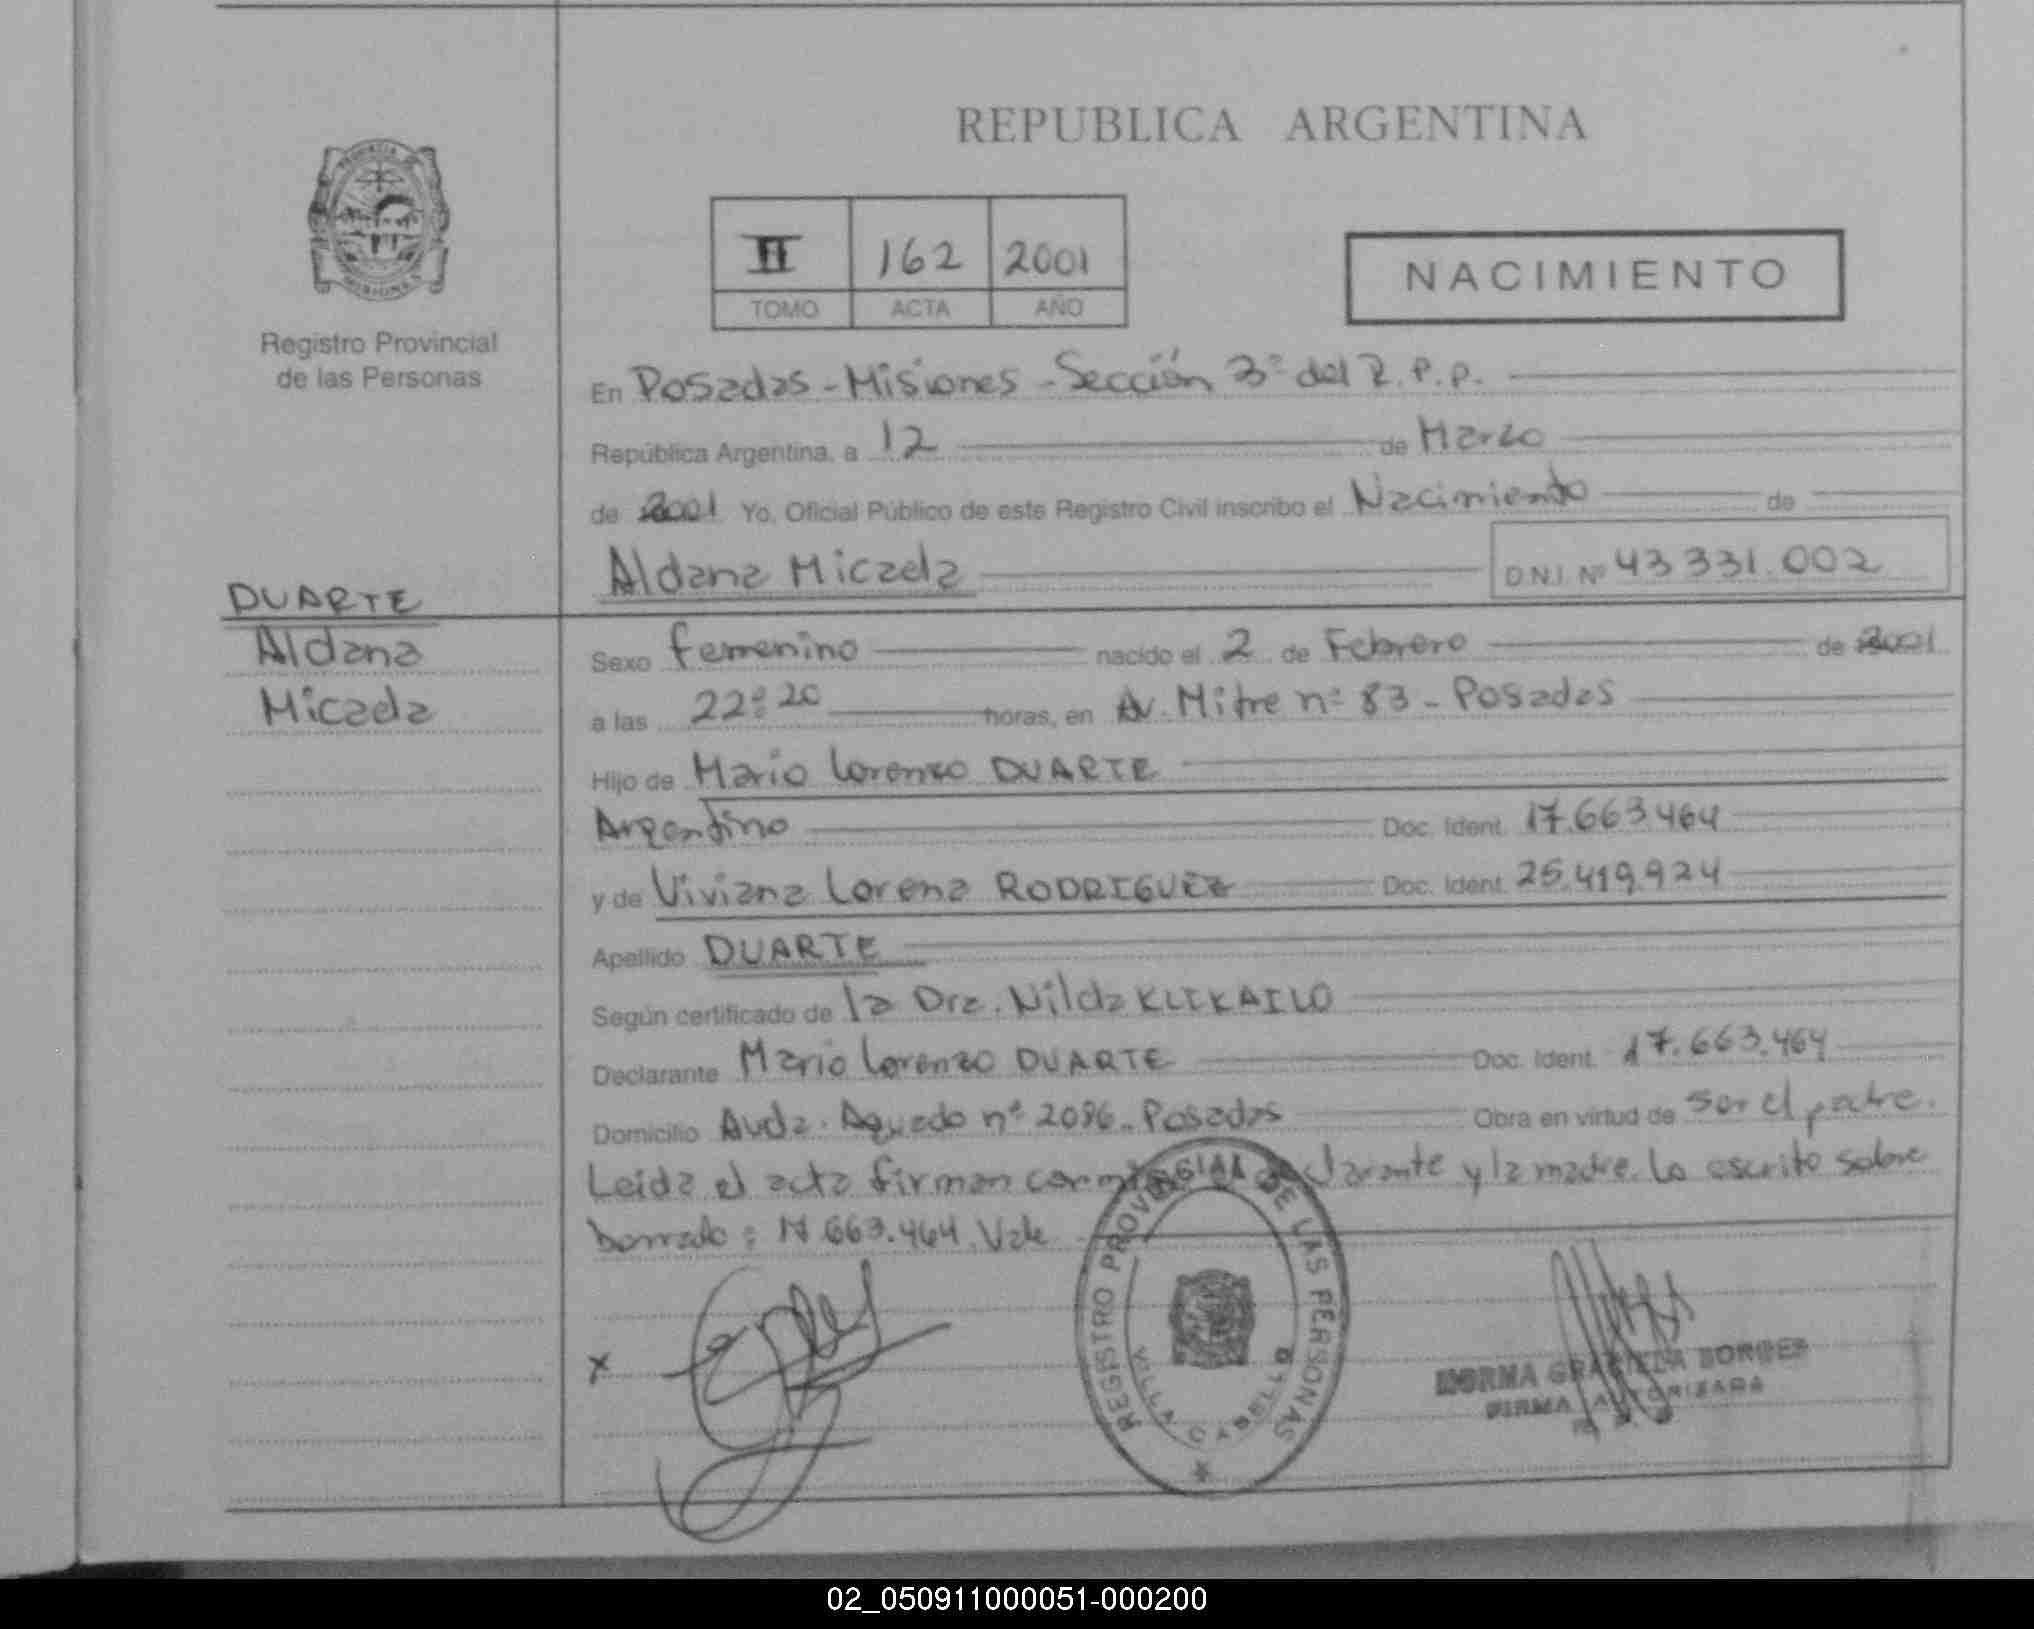 REPUBLICA ARGENTINA
PROVINCIA DE
MISIONES
Registro Provincial
de las Personas
II 162 2001
TOMO ACTA AÑO
NACIMIENTO
En Posadas - Misiones - Sección 3ª del R.P.P.
República Argentina, a 12 de Marzo
de 2001 Yo, Oficial Público de este Registro Civil inscribo el Nacimiento de
Aldana Micaela D.N.I. Nº 43 331.002
DUARTE
Aldana
Micaela
Sexo femenino nacido el 2 de Febrero de 2001
a las 22:20 horas, en Av. Mitre nº 83 - Posadas
Hijo de Mario Lorenzo DUARTE
Argentino Doc. Ident. 17.663.464
y de Viviana Lorena RODRIGUEZ Doc. Ident. 25.419.924
Apellido DUARTE
Según certificado de la Dra. Nilda KLEKAILO
Declarante Mario Lorenzo DUARTE Doc. Ident. 17.663.464
Domicilio Avda. Aguado nº 2086 - Posadas Obra en virtud de ser el padre.
Leida el acta firman conmigo declarante y la madre. Lo escrito sobre
borrado: 17.663.464. Vale
x
REGISTRO PROVINCIAL DE LAS PERSONAS
VILLA CABELLO
NORMA GRACIELA BORGES
FIRMA AUTORIZADA
02_050911000051-000200